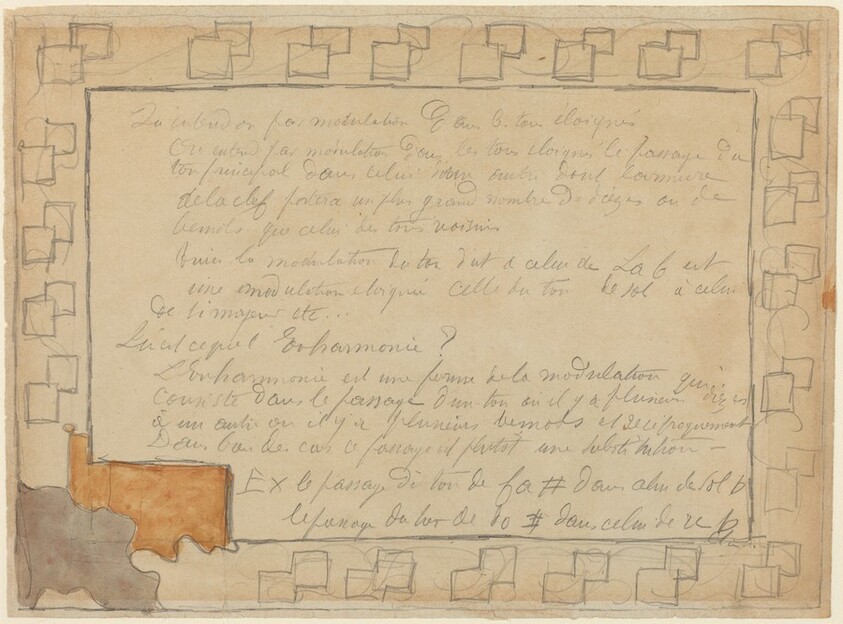 Qu'entend on par modulation Dans les tons éloignés
On entend par modulation Dans les tons eloignés le passage du
ton principal dans celui d'un autre dont l'armure
de la clef portera un plus grand nombre de dièzes ou de
bemols que celui des tons voisins
la modulation du ton d'ut à celui de La b est
une modulation eloignée celle du ton de sol à celui
de si majeur etc...
Qu'est ce que l'Enharmonie ?
L'Enharmonie est une forme de la modulation qui
consiste dans le passage d'un ton où il y a plusieurs dièzes
à un autre où il y a plusieurs bemols et réciproquement
Dans bien des cas ce passage est plutot une substitution -
Ex le passage du ton de fa # dans celui de sol b
le passage du ton de do # dans celui de re b